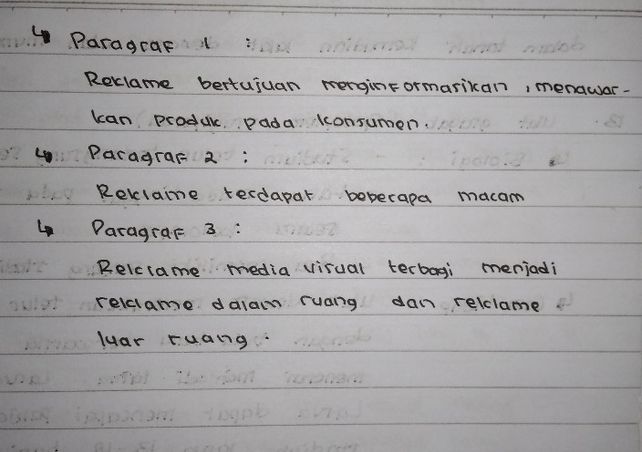 ↳ Paragraf 1 :
Reklame bertujuan menginformasikan, menawar-
kan produk pada konsumen.
↳ Paragraf 2 :
Reklame terdapat beberapa macam
↳ Paragraf 3 :
Reklame media visual terbagi menjadi
reklame dalam ruang dan reklame
luar ruang.